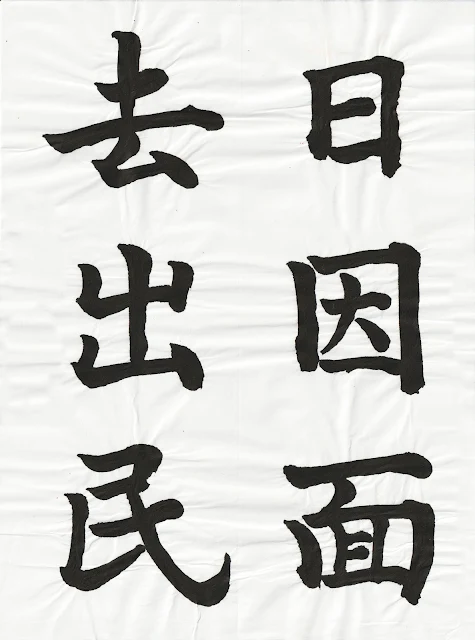 日因面
去出民